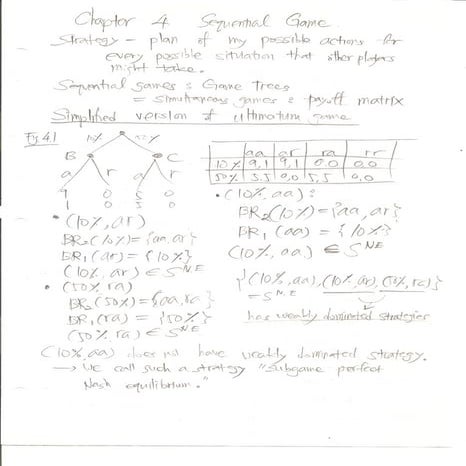 Chapter 4 Sequential Game.
Strategy - plan of my possible actions for
every possible situation that other players
might take.
Sequential games : Game Trees
= simultaneous games : payoff matrix
Simplified version of ultimatum game
Fg 4.1
10% 50%
B C
a r a r
9 0 5 0
1 0 5 0
aa ar ra rr
10% 9,1 9,1 0,0 0,0
50% 5,5 0,0 5,5 0,0
• (10%, ar)
BR₂(10%) = {aa, ar}
BR₁(ar) = {10%}
(10%, ar) ∈ S^N.E
• (50%, ra)
BR₂(50%) = {aa, ra}
BR₁(ra) = {50%}
(50%, ra) ∈ S^NE
• (10%, aa) :
BR₂(10%) = {aa, ar}
BR₁(aa) = {10%}
(10%, aa) ∈ S^NE
{(10%, aa), (10%, ar), (50%, ra)}
= S^N.E
has weakly dominated strategies
(10%, aa) does not have weakly dominated strategy.
→ We call such a strategy "subgame perfect
Nash equilibrium."